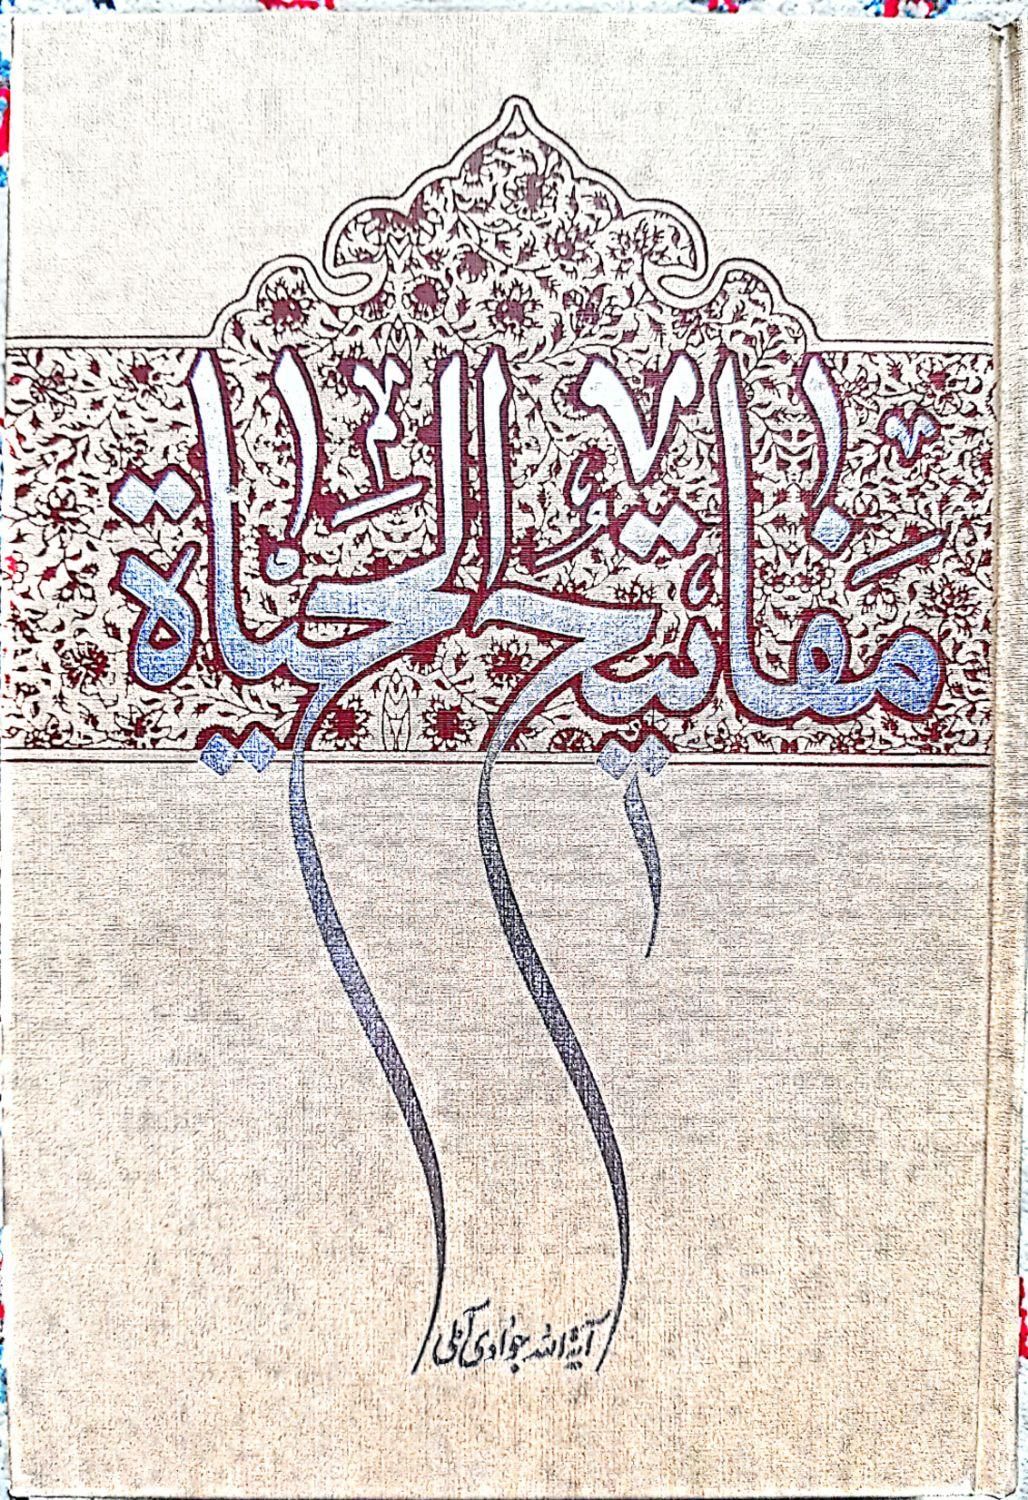 مفاتیح الحیاة
آیة الله جوادی آملی